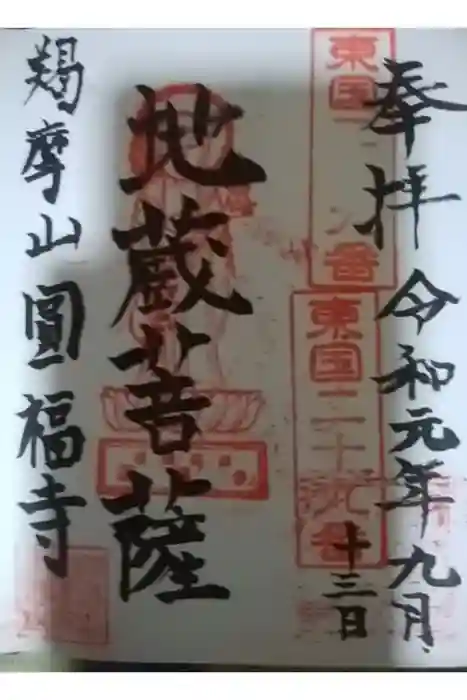 奉拝 令和元年九月
十三日
東国
番
東国二十
番
地蔵菩薩
羯摩山圓福寺